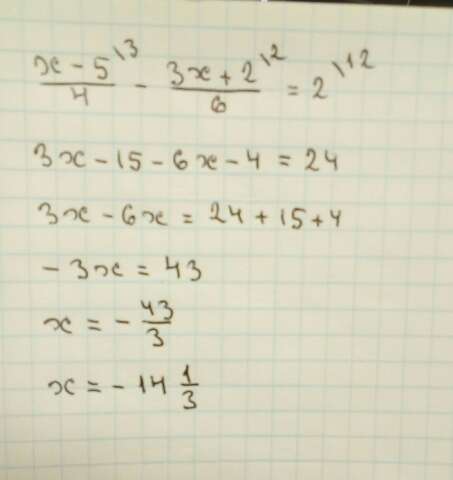 x - 5^\3 / 4 - 3x + 2^\2 / 6 = 2^\12
3x - 15 - 6x - 4 = 24
3x - 6x = 24 + 15 + 4
- 3x = 43
x = - 43/3
x = - 14 1/3